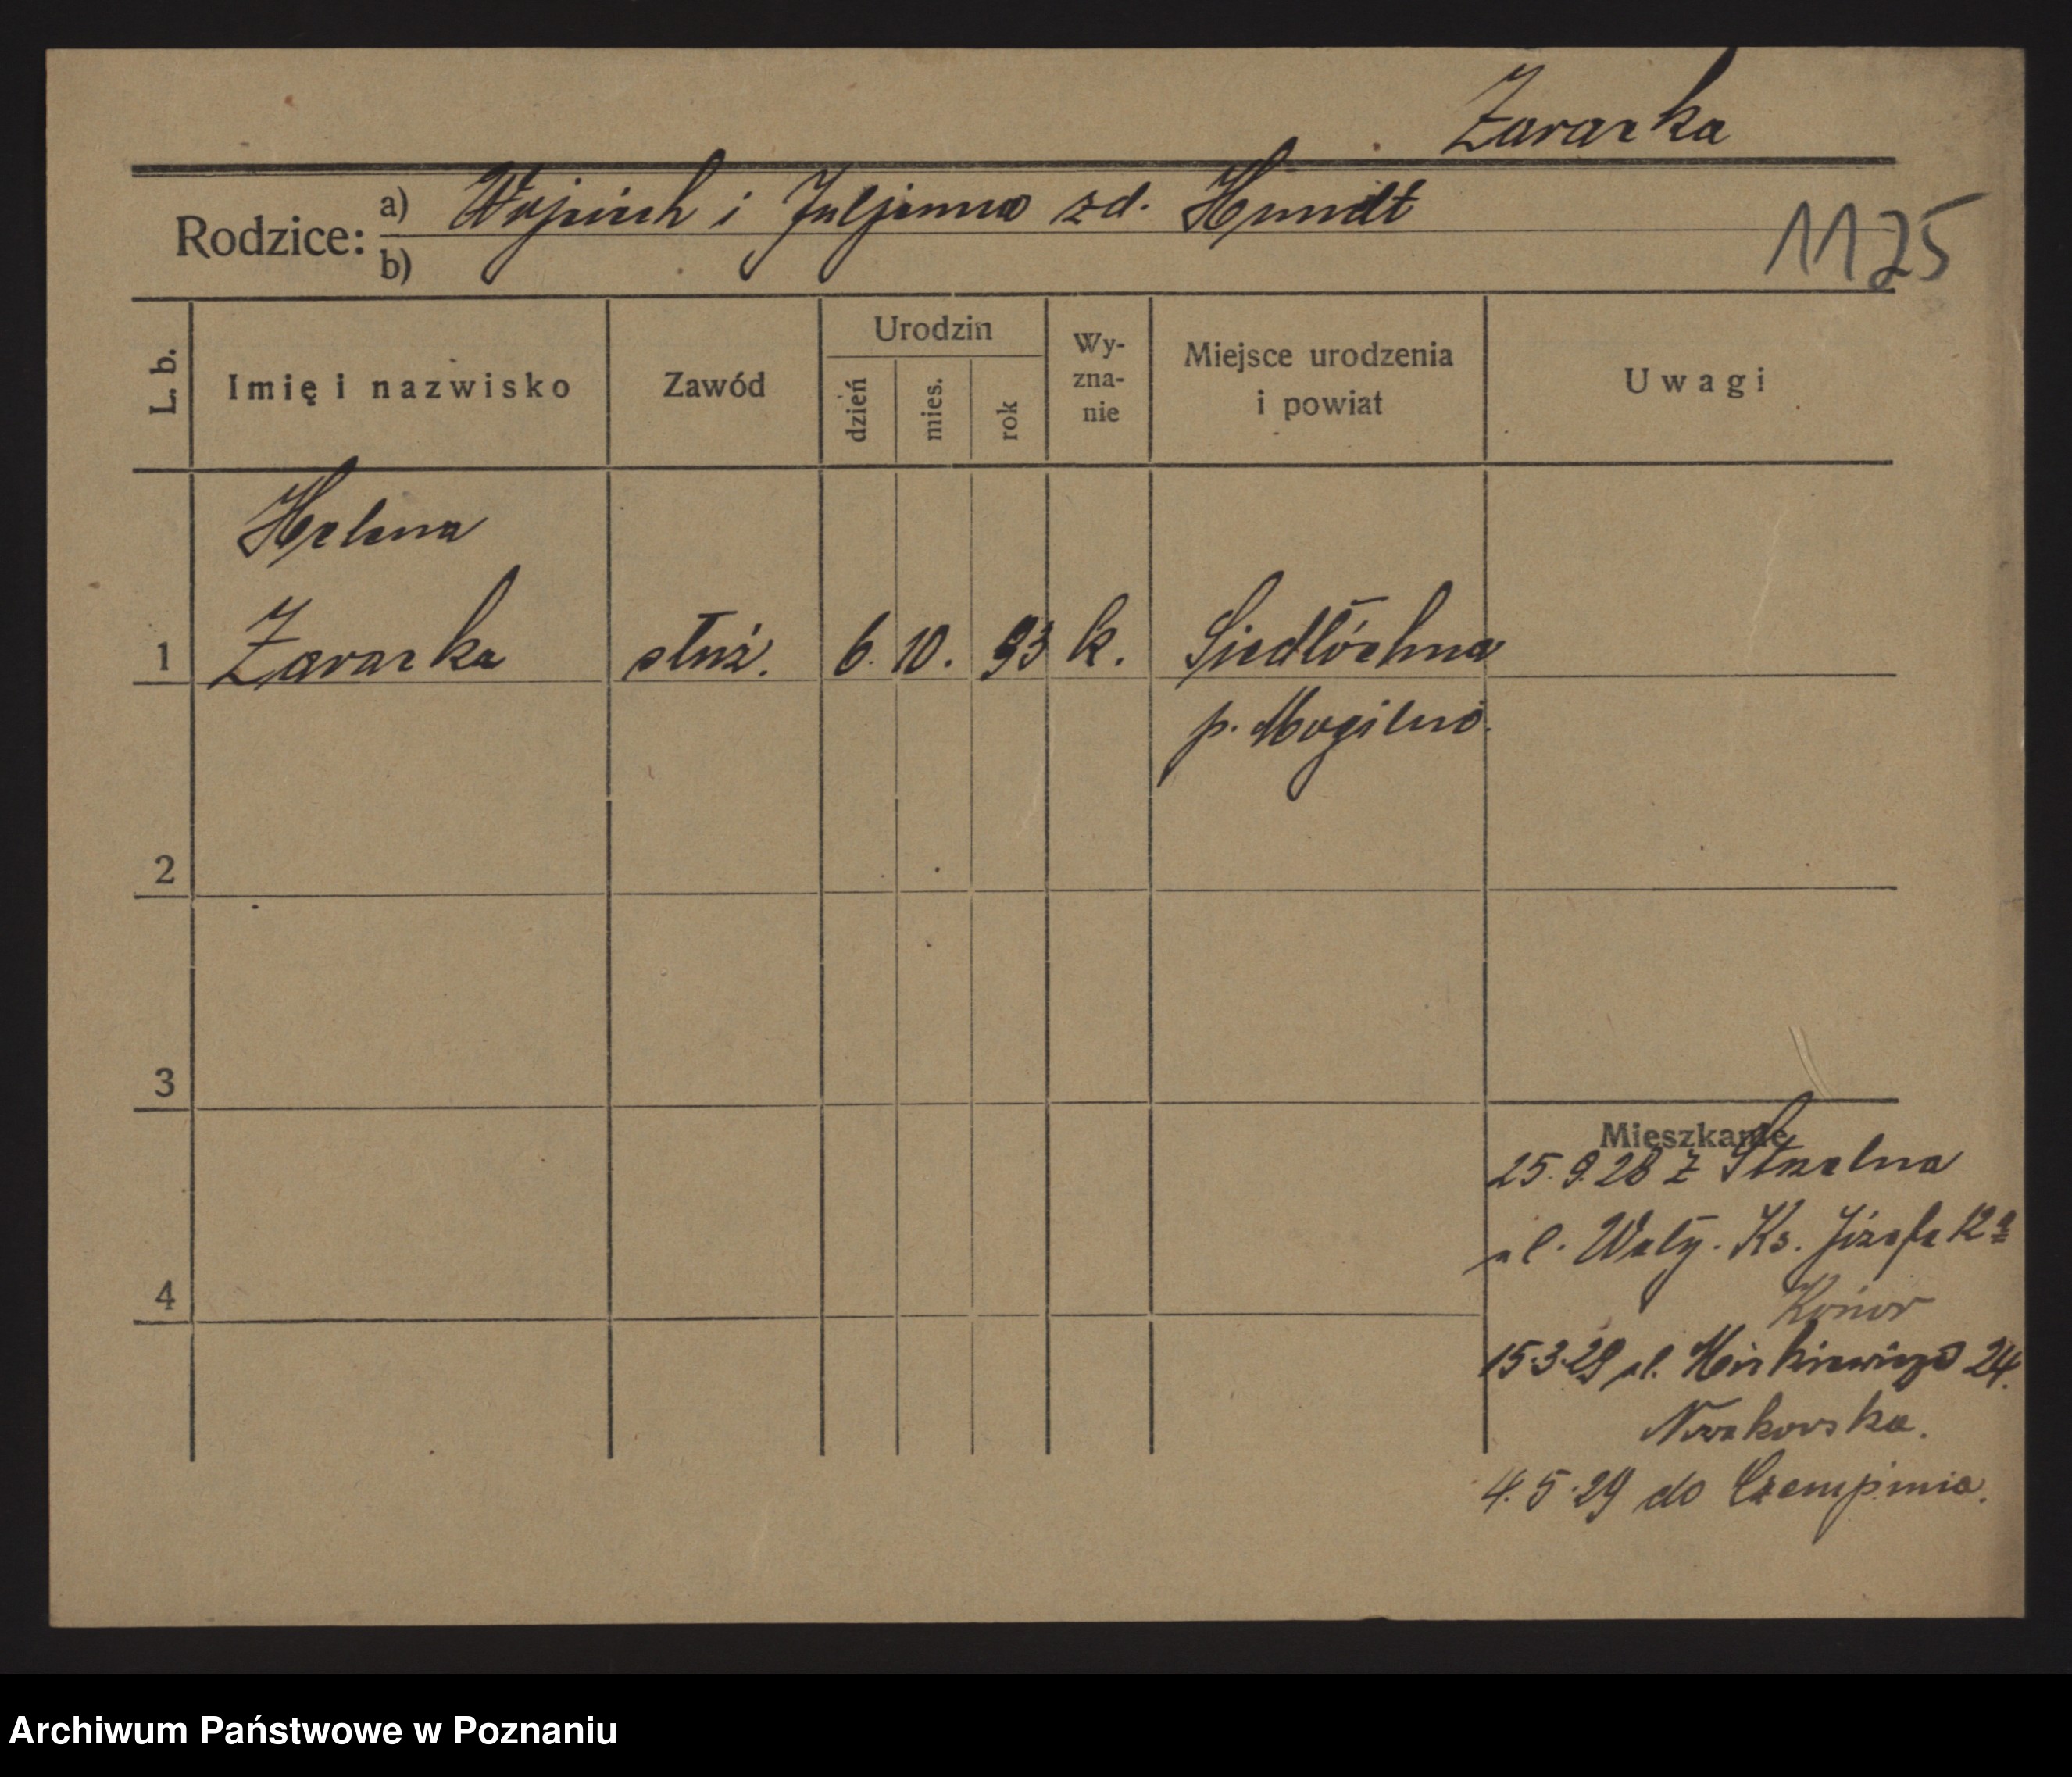 Zawarka
Rodzice: a) Wojciech i Juljanna zd. Hundt
b)
1125
L. b. Imię i nazwisko Zawód Urodzin dzień mies. rok Wy-zna-nie Miejsce urodzenia i powiat Uwagi
Helena
1 Zawarka służ. 6. 10. 93 k. Siedlóchna
p. Mogilno.
2
3
Mieszkanie
25.9.28 z Strzelna
ul. Wały. Ks. Józefa 12a
4
15.3.29 ul. 24.
Nowakowska.
4.5.29 do Czempinia.
Archiwum Państwowe w Poznaniu